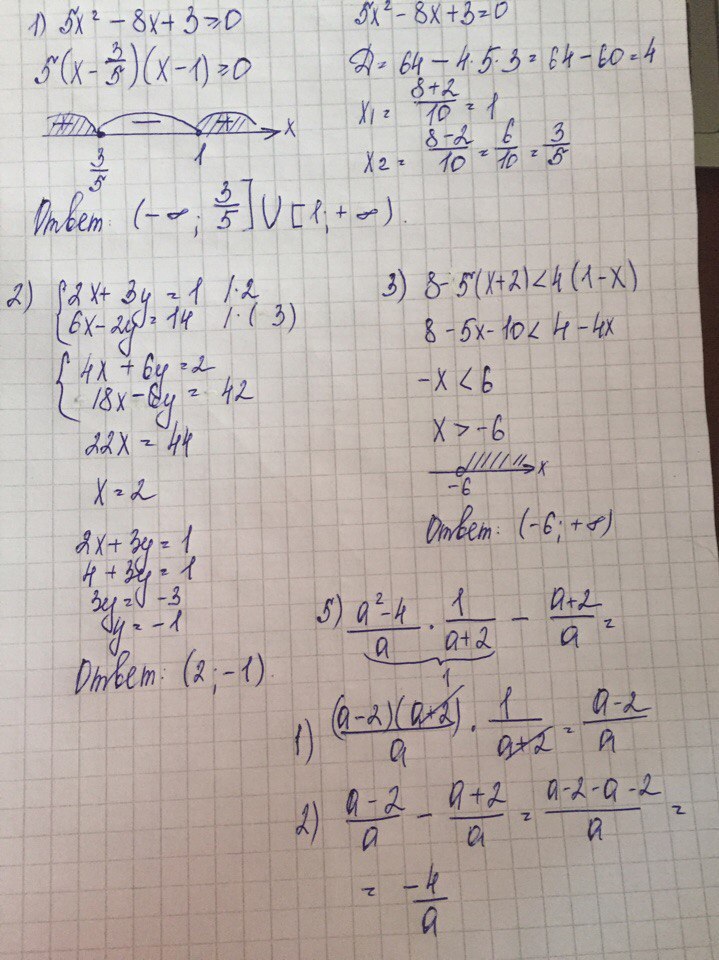 1) 5x² - 8x + 3 ≥ 0
5(x - 3/5)(x - 1) ≥ 0
+ − + x
3/5 1
Ответ: (-∞; 3/5] ∪ [1; +∞).
5x² - 8x + 3 = 0
D = 64 - 4·5·3 = 64 - 60 = 4
x₁ = (8+2)/10 = 1
x₂ = (8-2)/10 = 6/10 = 3/5
2) { 2x + 3y = 1 |·2
6x - 2y = 14 |·( 3)
{ 4x + 6y = 2
18x - 6y = 42
22x = 44
x = 2
2x + 3y = 1
4 + 3y = 1
3y = -3
y = -1
Ответ: (2; -1).
3) 8 - 5(x+2) < 4(1-x)
8 - 5x - 10 < 4 - 4x
-x < 6
x > -6
-6 x
Ответ: (-6; +∞)
5) (a²-4)/a · 1/(a+2) - (a+2)/a =
1
1) (a-2)(a+2)/a · 1/(a+2) = (a-2)/a
2) (a-2)/a - (a+2)/a = (a-2-a-2)/a =
= -4/a